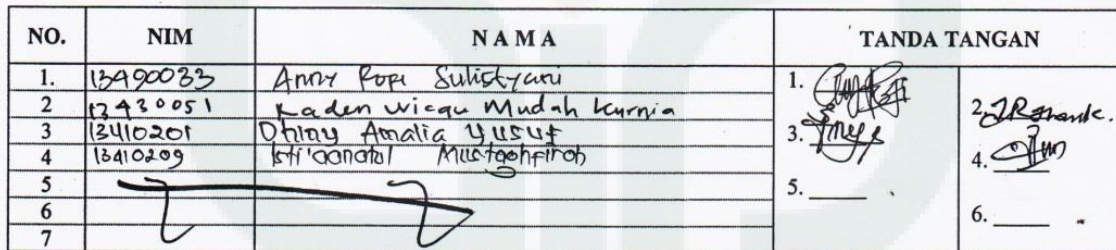 NO. NIM NAMA TANDA TANGAN
1. 13490033 Anny Ropi Sulistyani 1.
2 13430051 Raden Wicqu Mudah Kurnia 2.
3 13410201 Dhiny Amalia Yusuf 3.
4 13410209 Isti'aanatul Mustaghfiroh 4.
5 5.
6 6.
7